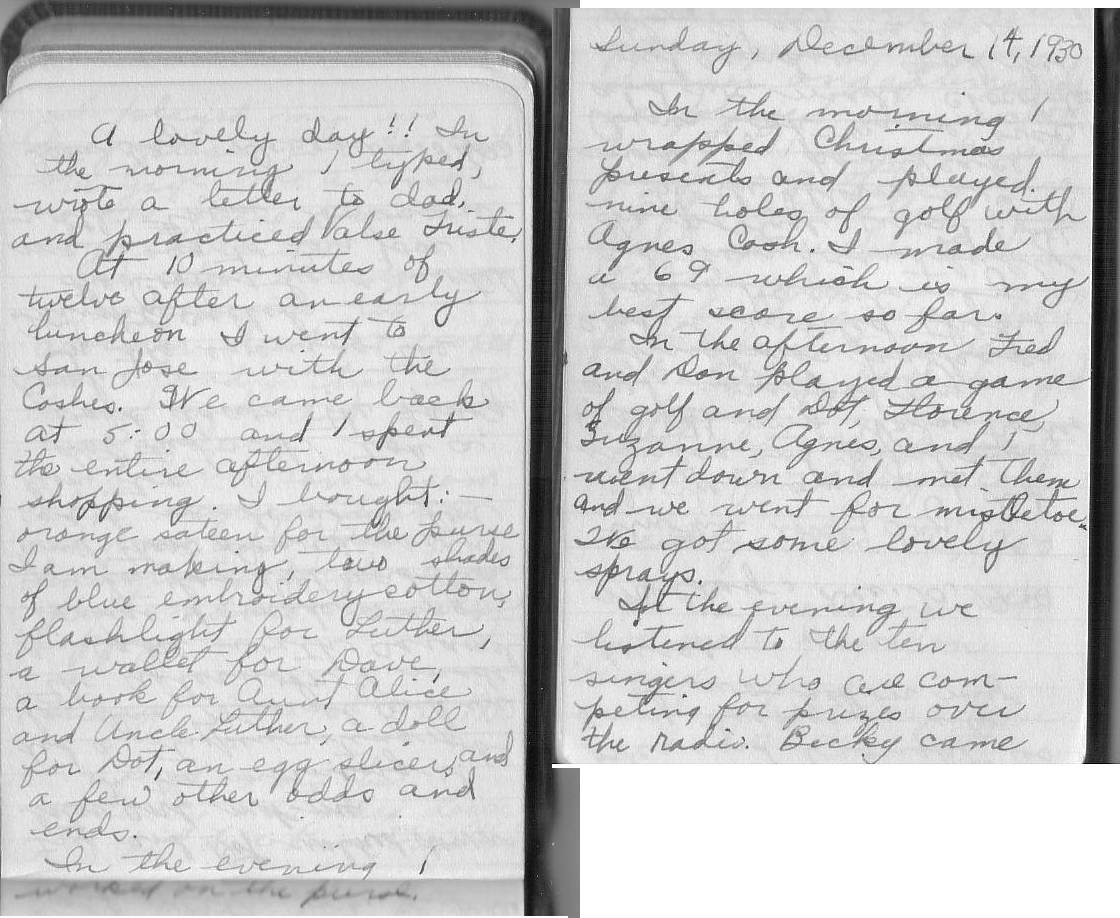 A lovely day!! In
the morning I typed,
wrote a letter to dad,
and practiced Valse Triste.
At 10 minutes of
twelve after an early
luncheon I went to
San Jose with the
Coshes. We came back
at 5:00 and I spent
the entire afternoon
shopping. I bought:—
orange sateen for the purse
I am making, two shades
of blue embroidery cotton,
flashlight for Luther,
a wallet for Dave,
a book for Aunt Alice
and Uncle Luther, a doll
for Dot, an egg slicer, and
a few other odds and
ends.
In the evening I
worked on the purse.
Sunday, December 14, 1930
In the morning I
wrapped Christmas
presents and played
nine holes of golf with
Agnes Cosh. I made
a 69 which is my
best score so far.
In the afternoon Fred
and Don played a game
of golf and Dot, Florence,
Suzanne, Agnes, and I
went down and met them
and we went for mistletoe.
We got some lovely
sprays.
In the evening we
listened to the ten
singers who are com-
peting for prizes over
the radio. Becky came